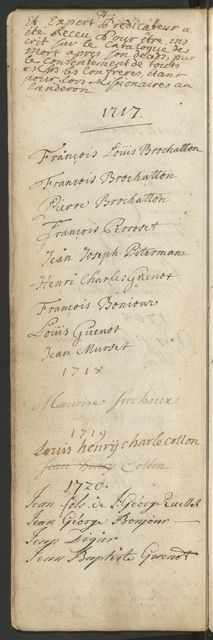 Et Expert Predicateur a
été Receu Pour être ins
crit sur le Catalogue des
mort apres son deads, par
le Consentement de touts
les Confreres, étant
pour lors Missionaires au
Landeron
1717.
François Louïs Brochatton
François Brochatton
Pierre Brochatton
François Perroset
Jean Joseph Petermane
Henri Charles Guenot
François Bonjour
Louïs Guenot
Jean Murset
1718
Maurise Frochaux
1719
Louis henry charle collon
Jean henry Collon
1720.
Jean fils de J. Géorg Quellet
Jean Géorge Bonjour
Jean Digier
Jean Baptiste Guenot